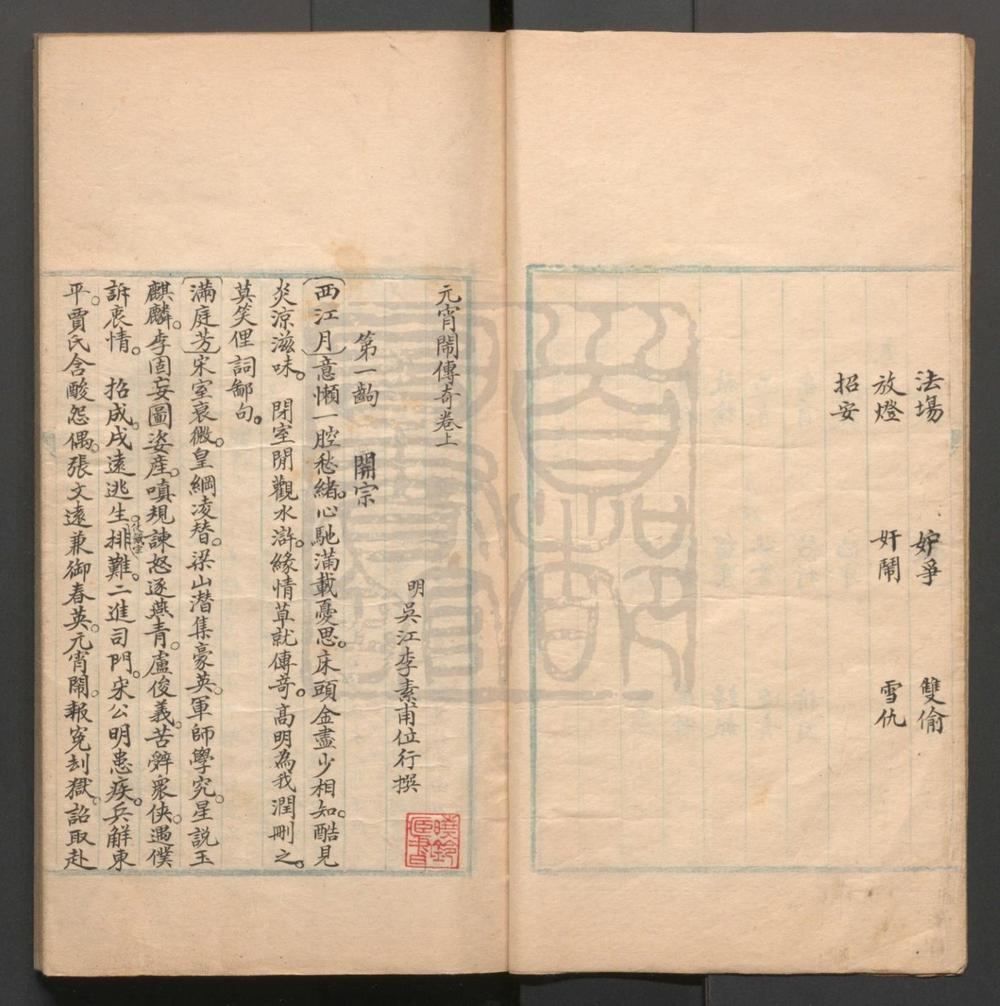 法場 妒爭 雙偷
放燈 奸鬧 雪仇
招安
元宵鬧傳奇卷上
明 吳江李素甫位行撰
第一齣 開宗
〔西江月〕意懶一腔愁緒。心馳滿載憂思。床頭金盡少相知。酷見
炎涼滋味。 閉室閒觀水滸。緣情草就傳奇。高明為我潤刪之。
莫笑俚詞鄙句。
〔滿庭芳〕宋室衰微。皇綱凌替。梁山潛集豪英。軍師學究。星說玉
麒麟。李固妄圖姿產。嗔規諫怒逐燕青。盧俊義。苦辭衆俠。遇僕
訴衷情。 招成。戍遠逃生。排難。二進司門。宋公明患疾。兵解東
平。賈氏含酸怨偶。張文遠兼御春英。元宵鬧。報寃刦獄。詔取赴
曉鈴藏書